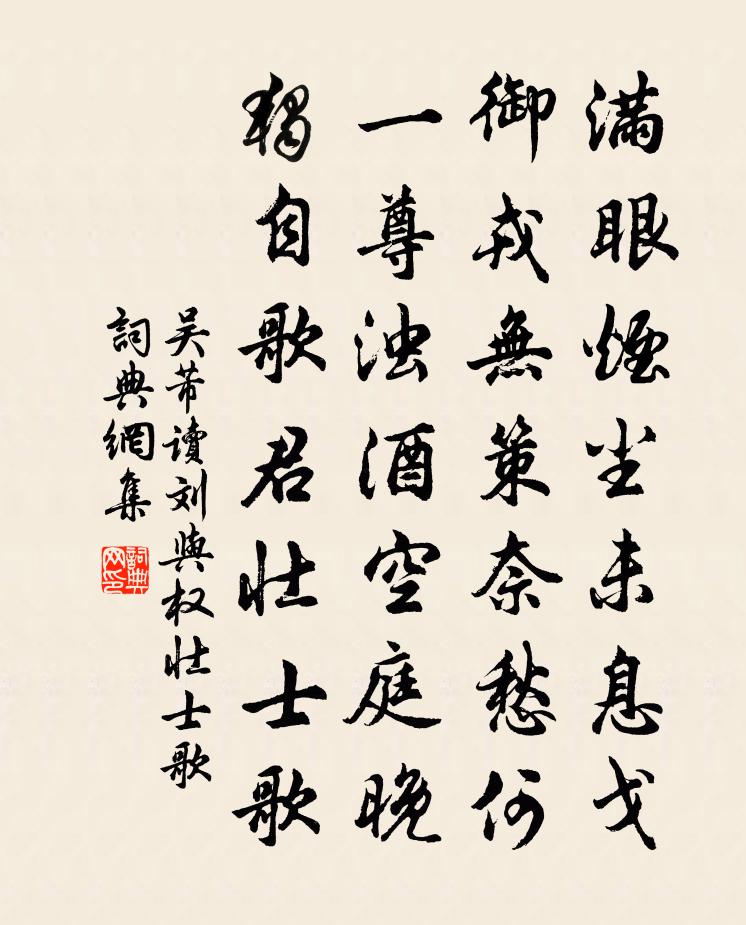 满眼烟尘未息戈
御戎無策奈愁何
一尊浊酒空庭晚
独自歌君壮士歌
吴芾读刘與权壮士歌
詞典網集
詞典网印